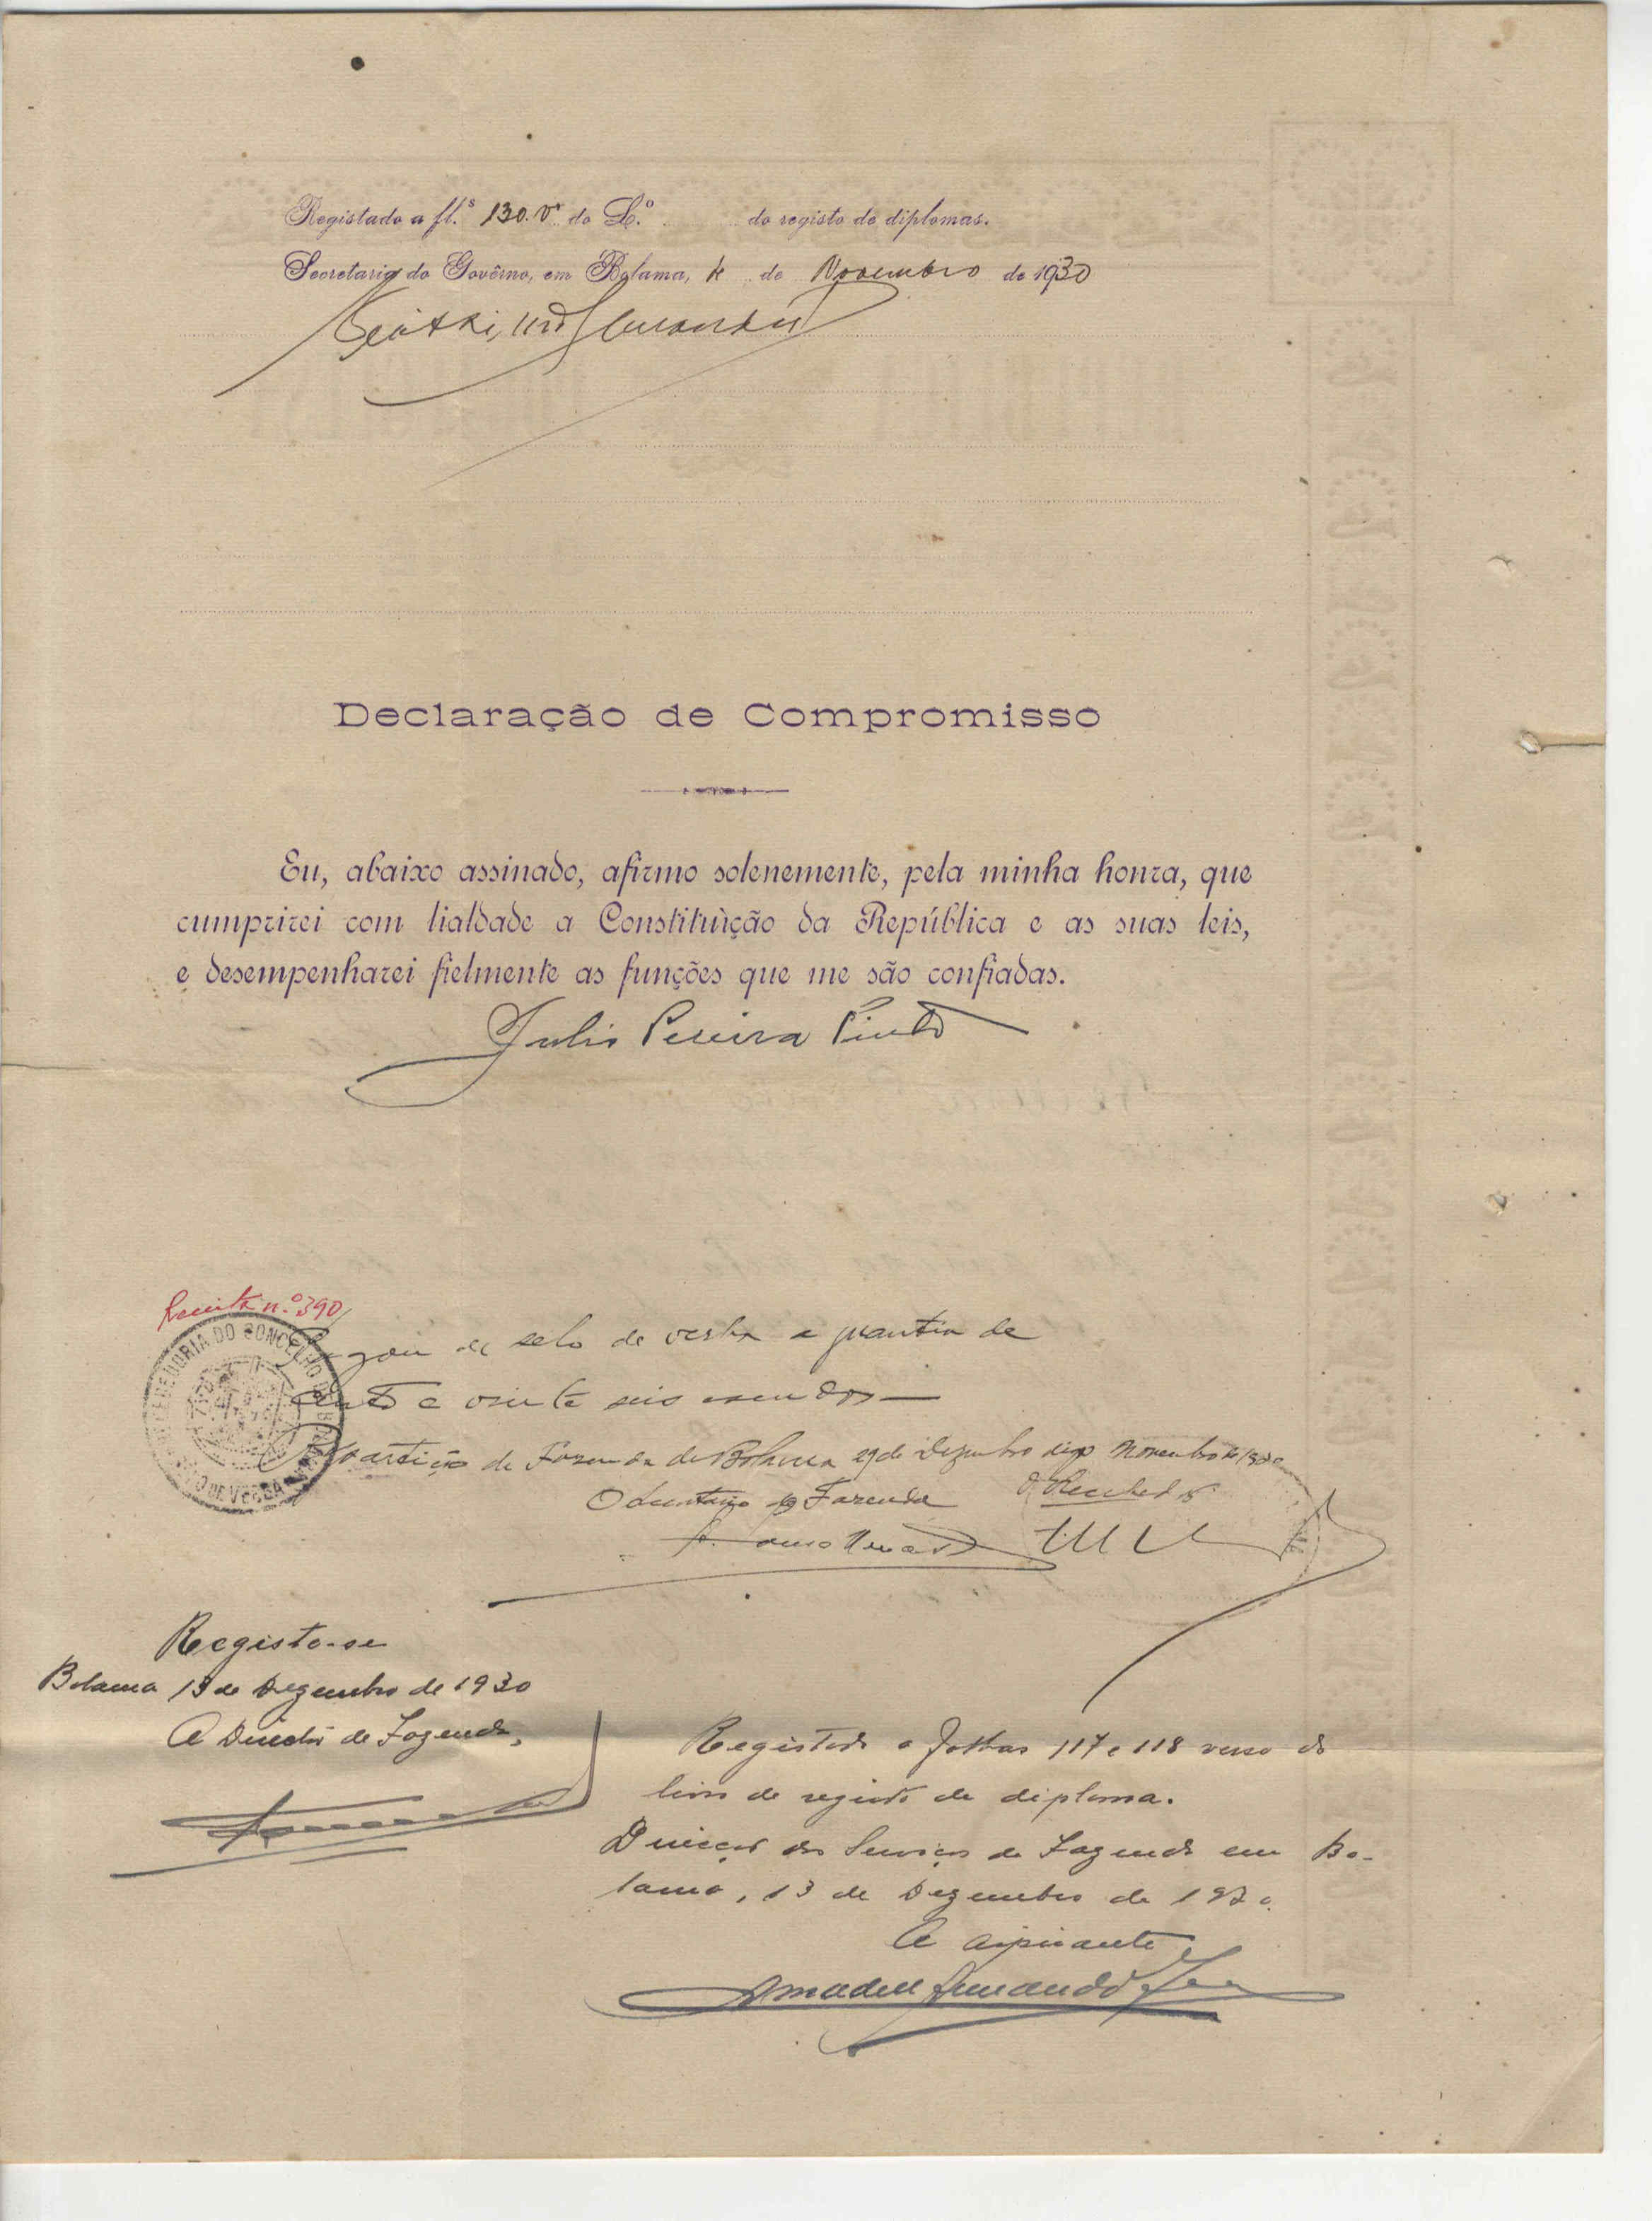 Registado a fl.s 130.vº do L.º do registo de diplomas.
Secretaria do Govêrno, em Bolama, de Novembro de 1930
Declaração de Compromisso
Eu, abaixo assinado, afirmo solenemente, pela minha honra, que
cumprirei com lialdade a Constituìção da República e as suas leis,
e desempenharei fielmente as funções que me são confiadas.
Julio Pereira Pinto
Receita n.º 390
Pagou de selo de verba a quantia de
cento e vinte seis escudos
Repartição de Fazenda de Bolama 29 de Dezembro digo Novembro de 1930
O da Fazenda O Recebedor
Registe-se
Bolama 13 de Dezembro de 1930
O Director de Fazenda,
Registado a folhas 117 e 118 verso do
livro de registo de diploma.
Direcção dos Serviços de Fazenda em Bo-
lama, 13 de Dezembro de 1930.
O aspirante
Amadeu Fernando